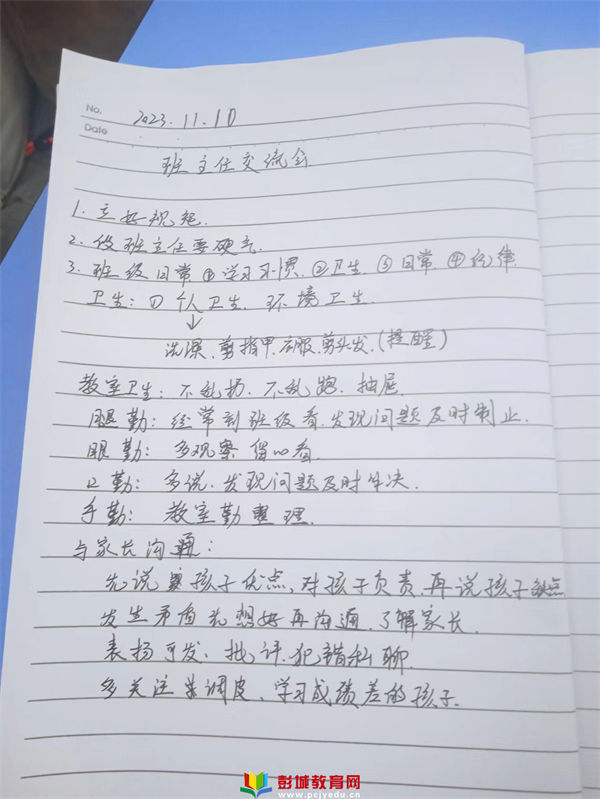 No. 2023.11.10
Date
班主任交流会
1. 立好规矩.
2. 做班主任要硬气
3. 班级日常 ①学习习惯. ②卫生. ③日常. ④纪律
卫生: 个人卫生. 环境卫生.
↓
洗澡. 剪指甲. 衣服. 剪头发. (提醒)
教室卫生: 不乱扔. 不乱跑. 抽屉.
腿勤: 经常到班级看. 发现问题及时制止.
眼勤: 多观察 留心看.
口勤: 多说. 发现问题及时解决.
手勤: 教室勤整理.
与家长沟通:
先说孩子优点, 对孩子负责. 再说孩子缺点
发生矛盾先想好再沟通. 了解家长.
表扬可发. 批评. 犯错私聊.
多关注调皮、学习成绩差的孩子.
彭城教育网
www.pcjyedu.cn